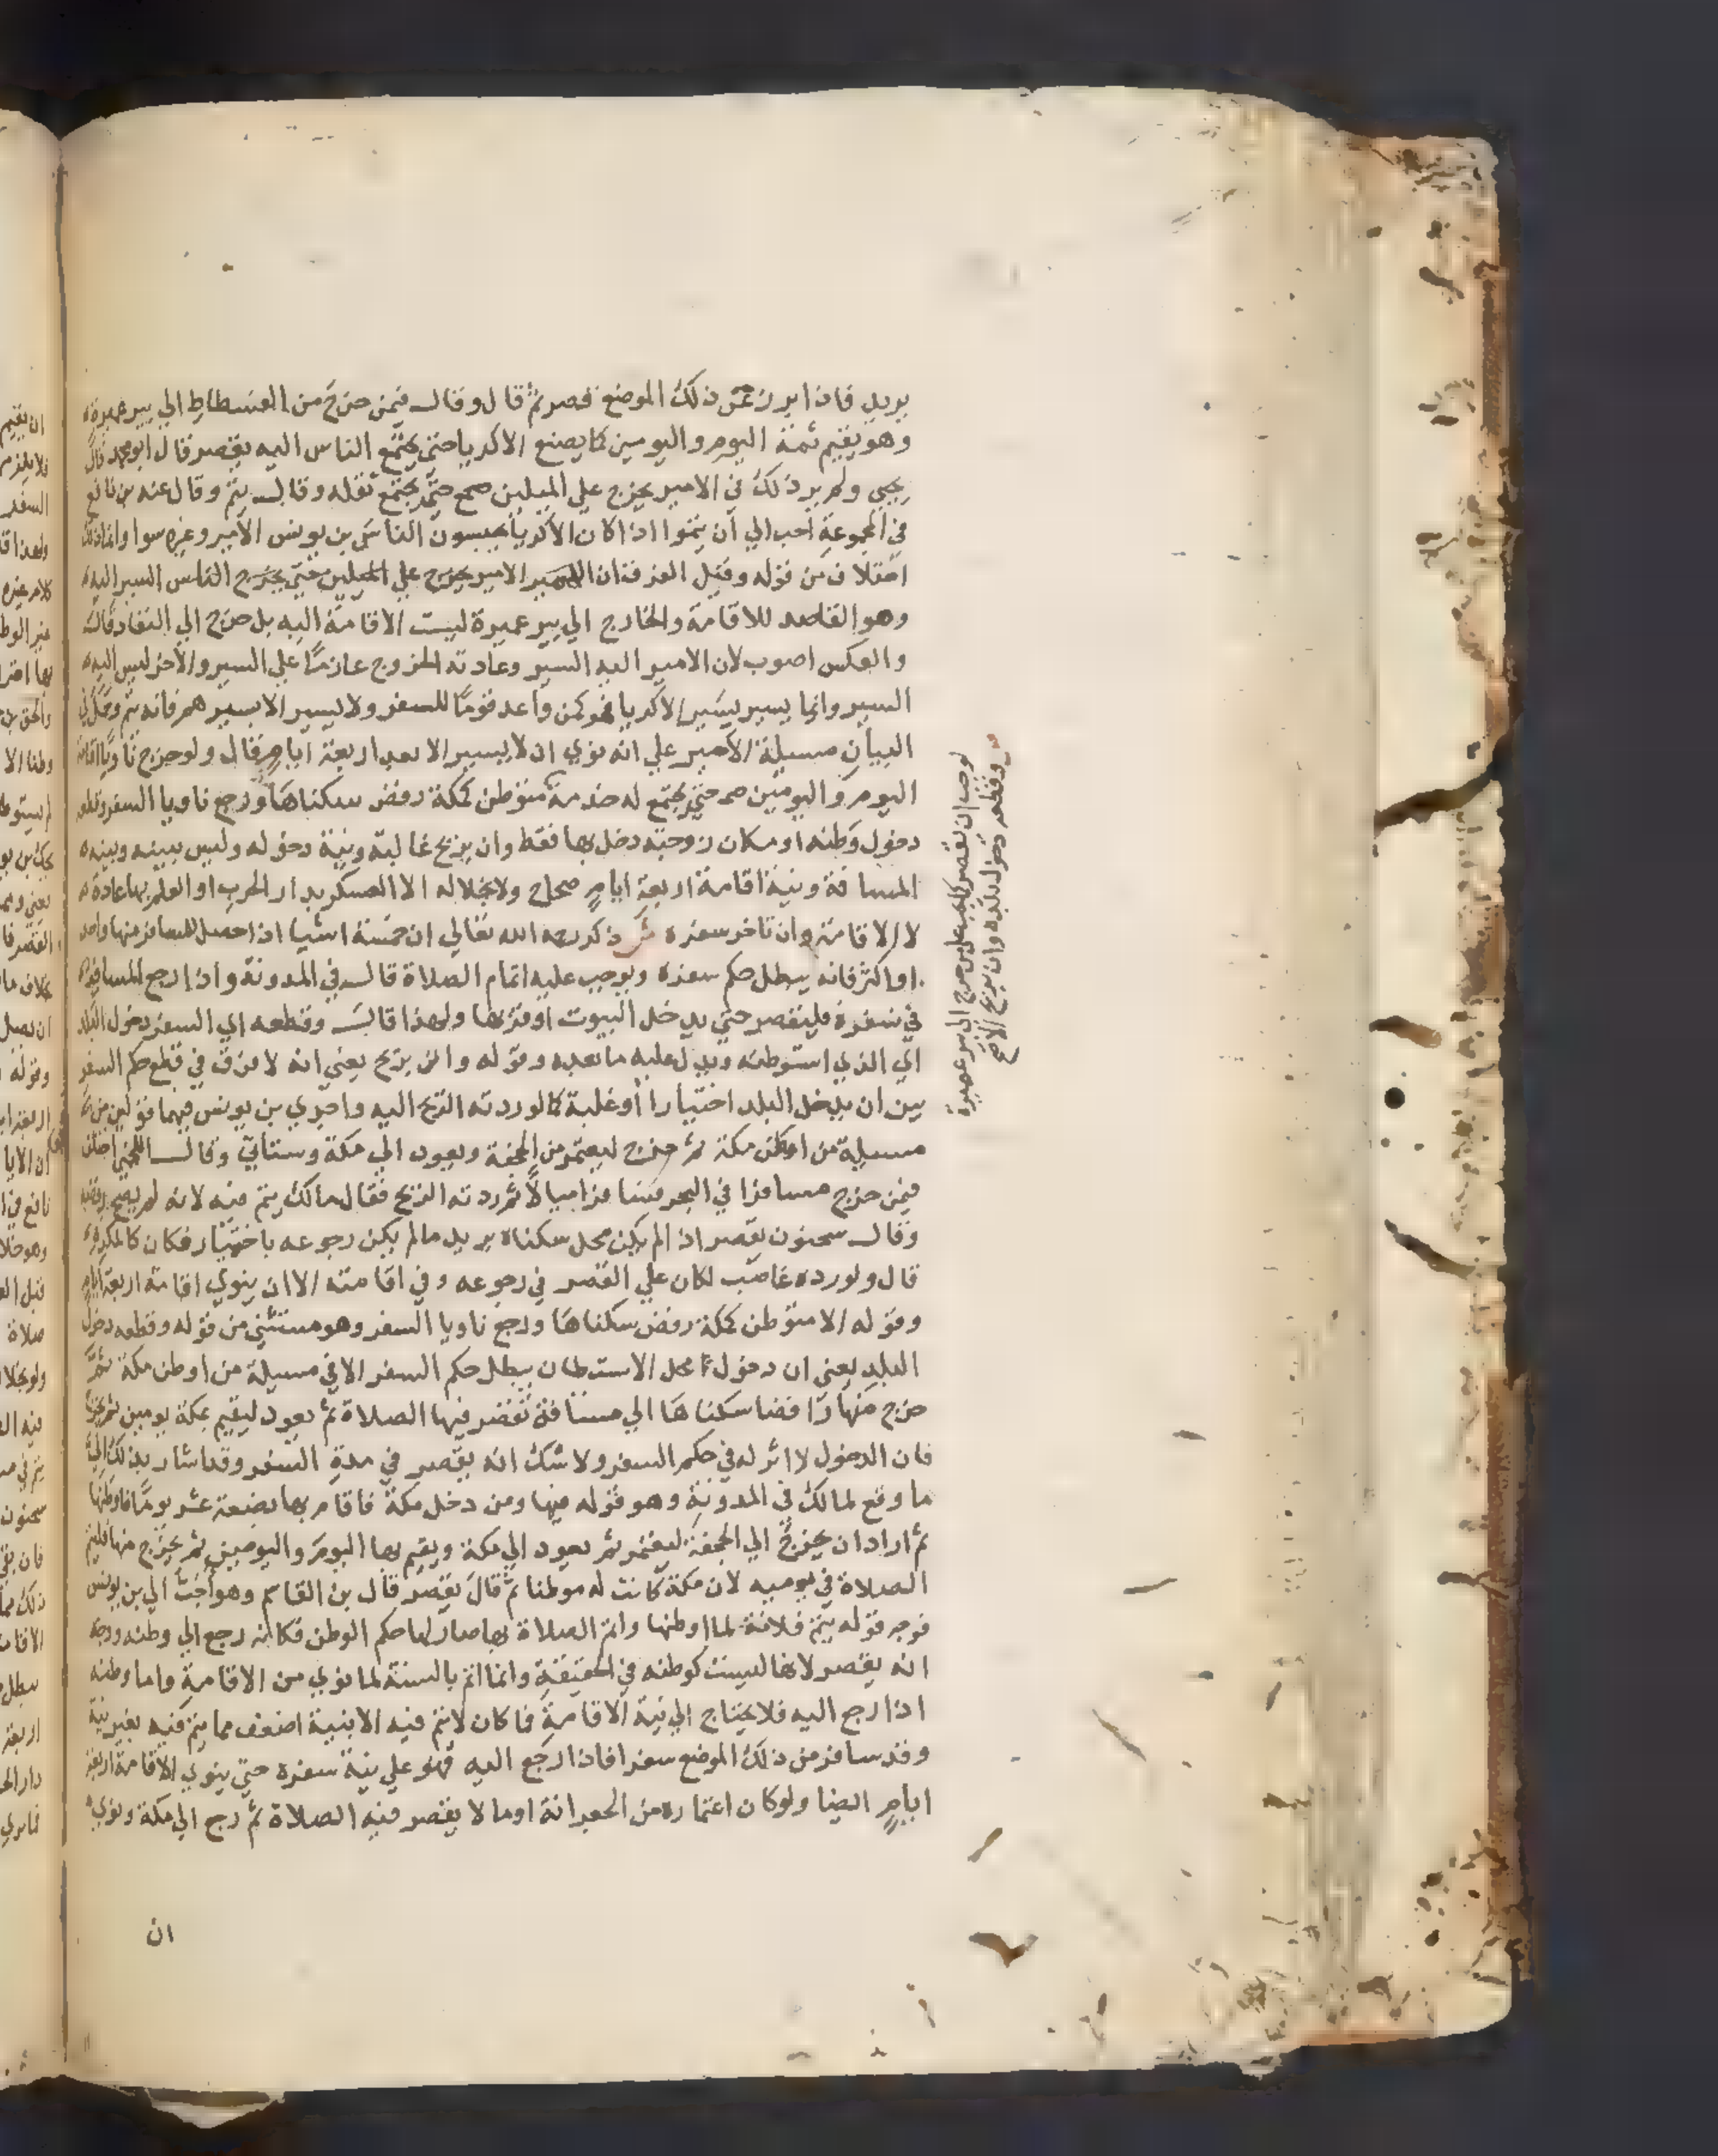 بريد فاذا برز عن ذلك الموضع قصر ثم قال وقال فيمن خرج من الفسطاط الي بير عميرة
وهو يقيم ثمة اليوم واليومين كما يصنع الاكريا حتي يجتمع الناس اليه يقصر قال ابو محمد قال
يحيي ولم ير ذلك في الامير يخرج علي الميلين صح حتي يجتمع ثقله وقال يتم وقال عنه بن نافع
في المجموعة احب الي ان يتموا اذا كان الاكريا يحبسون الناس بن يونس الامير وغيره سوا وانما ذلك
اختلاف من قوله وقيل الفرق ان الامير يخرج علي الميلين حتي يخرج الناس السير اليه
وهو القاصد للاقامة والخارج الي بير عميرة ليست الاقامة اليه بل خرج الي النفاد قال
والعكس اصوب لان الامير اليه السير وعادته الخروج عازما علي السير والاخر ليس اليه
السير وانما يسير بسير الاكريا فهو كمن واعد قوما للسفر ولا يسير الا بسيرهم فانه يتم وحمل في
البيان مسيلة الامير علي انه نوي ان لا يسير الا بعد اربعة ايام قال ولو خرج ناويا اقامة
اليوم واليومين صح حتي يجتمع له خدمة متوطن كمكة رفض سكناها ورجع ناويا السفر وقطعه
دخول وطنه او مكان زوجته دخل بها فقط وان بريح غالبة ونية دخوله وليس بينه وبينه
المسافة ونية اقامة اربعة ايام صحاح ولا بخلاله الا العسكر بدار الحرب او العلم بها عادة
لا الاقامة وان تاخر سفره ش ذكر رحمه الله تعالي ان خمسة اشيا اذا حصل للمسافر منها واحد
او اكثر فانه يبطل حكم سفره ويوجب عليه اتمام الصلاة قال في المدونة واذا رجع المسافر
في سفره فليقصر حتي يدخل البيوت او قربها ولهذا قال وقطعه اي السفر دخول البلد
اي الذي استوطنه ويدل عليه ما بعده وقوله وان بريح يعني انه لا فرق في قطع حكم السفر
بين ان يدخل البلد اختيارا او غلبة كما لو ردته الريح اليه واجري بن يونس فيهما قولين من
مسيلة من اوطن مكة ثم خرج ليعتمر من الجحفة ويعود الي مكة وستاتي وقال اللخمي اختلف
فيمن خرج مسافرا في البحر فسافر اميالا ثم ردته الريح فقال مالك يتم فيه لانه لم يصح رفضه
وقال سحنون يقصر اذا لم يكن محل سكناه يريد ما لم يكن رجوعه باختيار فكان كالمكره
قال ولو رده غاصب لكان علي القصر في رجوعه وفي اقامته الا ان ينوي اقامة اربعة ايام
وقوله الا متوطن كمكة رفض سكناها ورجع ناويا السفر وهو مستثني من قوله وقطعه دخول
البلد يعني ان دخول محل الاستيطان يبطل حكم السفر الا في مسيلة من اوطن مكة ثم
خرج منها رافضا سكناها الي مسافة تقصر فيها الصلاة ثم يعود ليقيم بمكة يومين ثم يخرج
فان الدخول لا اثر له في حكم السفر ولا شك انه يقصر في مدة السفر وقد اشار بذلك الي
ما وقع لمالك في المدونة وهو قوله فيها ومن دخل مكة فاقام بها بضعة عشر يوما فاوطنها
ثم اراد ان يخرج الي الجحفة ليعتمر ثم يعود الي مكة ويقيم بها اليوم واليومين ثم يخرج منها فليتم
الصلاة في يوميه لان مكة كانت له موطنا ثم قال يقصر قال بن القاسم وهو احب الي بن يونس
فوجه قوله يتم فلانه لما اوطنها واتم الصلاة بها صار لها حكم الوطن فكانه رجع الي وطنه ووجه
انه يقصر لانها ليست كوطنه في الحقيقة وانما اتم بالسنة لما نوي من الاقامة واما وطنه
اذا رجع اليه فلا يحتاج الي نية الاقامة فما كان لا يتم فيه الا بنية اضعف مما يتم فيه بغير نية
وقد سافر من ذلك الموضع سفرا فاذا رجع اليه فهو علي نية سفره حتي ينوي الاقامة اربعة
ايام ايضا ولو كان اعتماره من الجعرانة او ما لا يقصر فيه الصلاة ثم رجع الي مكة ونوي
ان
لوجب ان يقصر كما يجب علي من خرج الي بير عميرة
ش وقطعه دخول بلده وان بريح الا